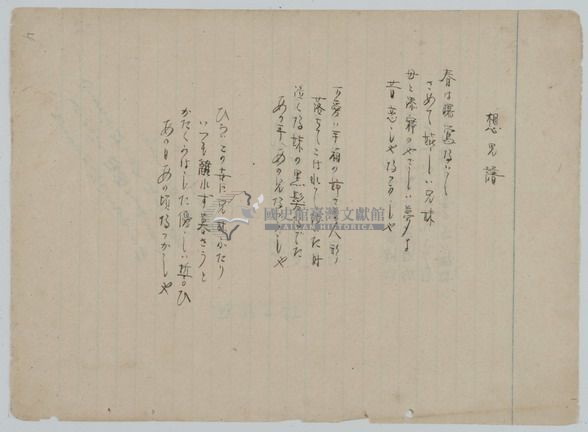 想兄譜
春は曙 鶯なく
さめて 嬉しい 兄妹
母と添寝のやさしい夢よ
昔恋しやなつかしや
可愛い 手箱の 姉さま人形
落としてこはれて 
泣くな妹の黒髪なでた
あの手 あの兄なつかしや
ひろいこの世に兄妹ふたり
いつも離れず暮さうと
かたくかはした優しい誓ひ
あの日あの頃なつかしや
國史館臺灣文獻館
TAIWAN HISTORICA